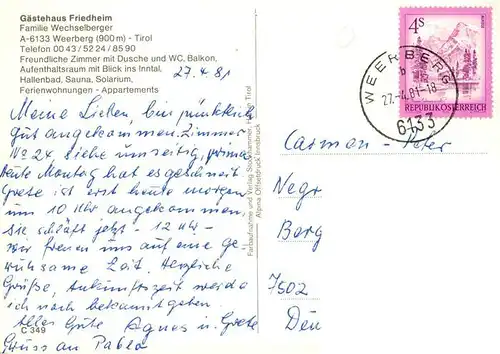 Gästehaus Friedheim
Familie Wechselberger
A-6133 Weerberg (900 m) - Tirol
Telefon 00 43 / 52 24 / 85 90
Freundliche Zimmer mit Dusche und WC, Balkon,
Aufenthaltsraum mit Blick ins Inntal,
Hallenbad, Sauna, Solarium,
Ferienwohnungen - Appartements
27.4.81
Meine Lieben, bin pünktlich
gut angekommen. Zimmer
No 24, siehe umseitig, prima
heute Montag hat es geschneit
Grete ist erst heute morgen
um 10 Uhr angekommen.
Sie schläft jetzt - 12 Uhr -
wir freuen uns auf eine ge-
ruhsame Zeit. Herzliche
Grüße, Ankunftszeit werde
ich noch bekanntgeben.
Alles Gute Agnes u. Grete
Gruss an
C 349
Farbaufnahme und Verlag
Alpina Offsetdruck Innsbruck
4 S
REPUBLIK ÖSTERREICH
WEERBERG
b
27.-4.81-18
6133
Carmen - Peter
Negr
Berg
7502
Den